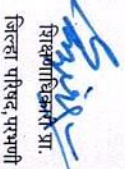 शिक्षणाधिकारी प्रा.
जिल्हा परिषद,परभणी